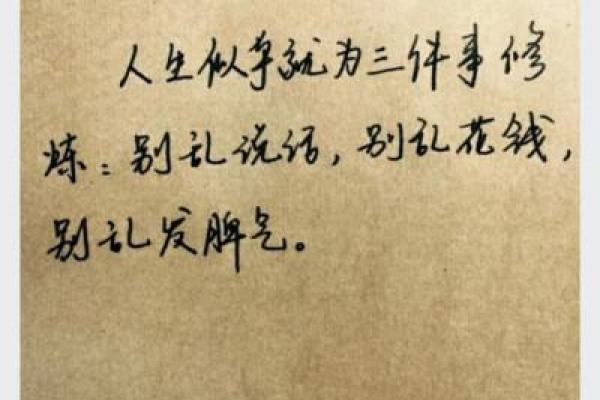 人生似草就为三件事修
炼：别乱说话，别乱花钱，
别乱发脾气。